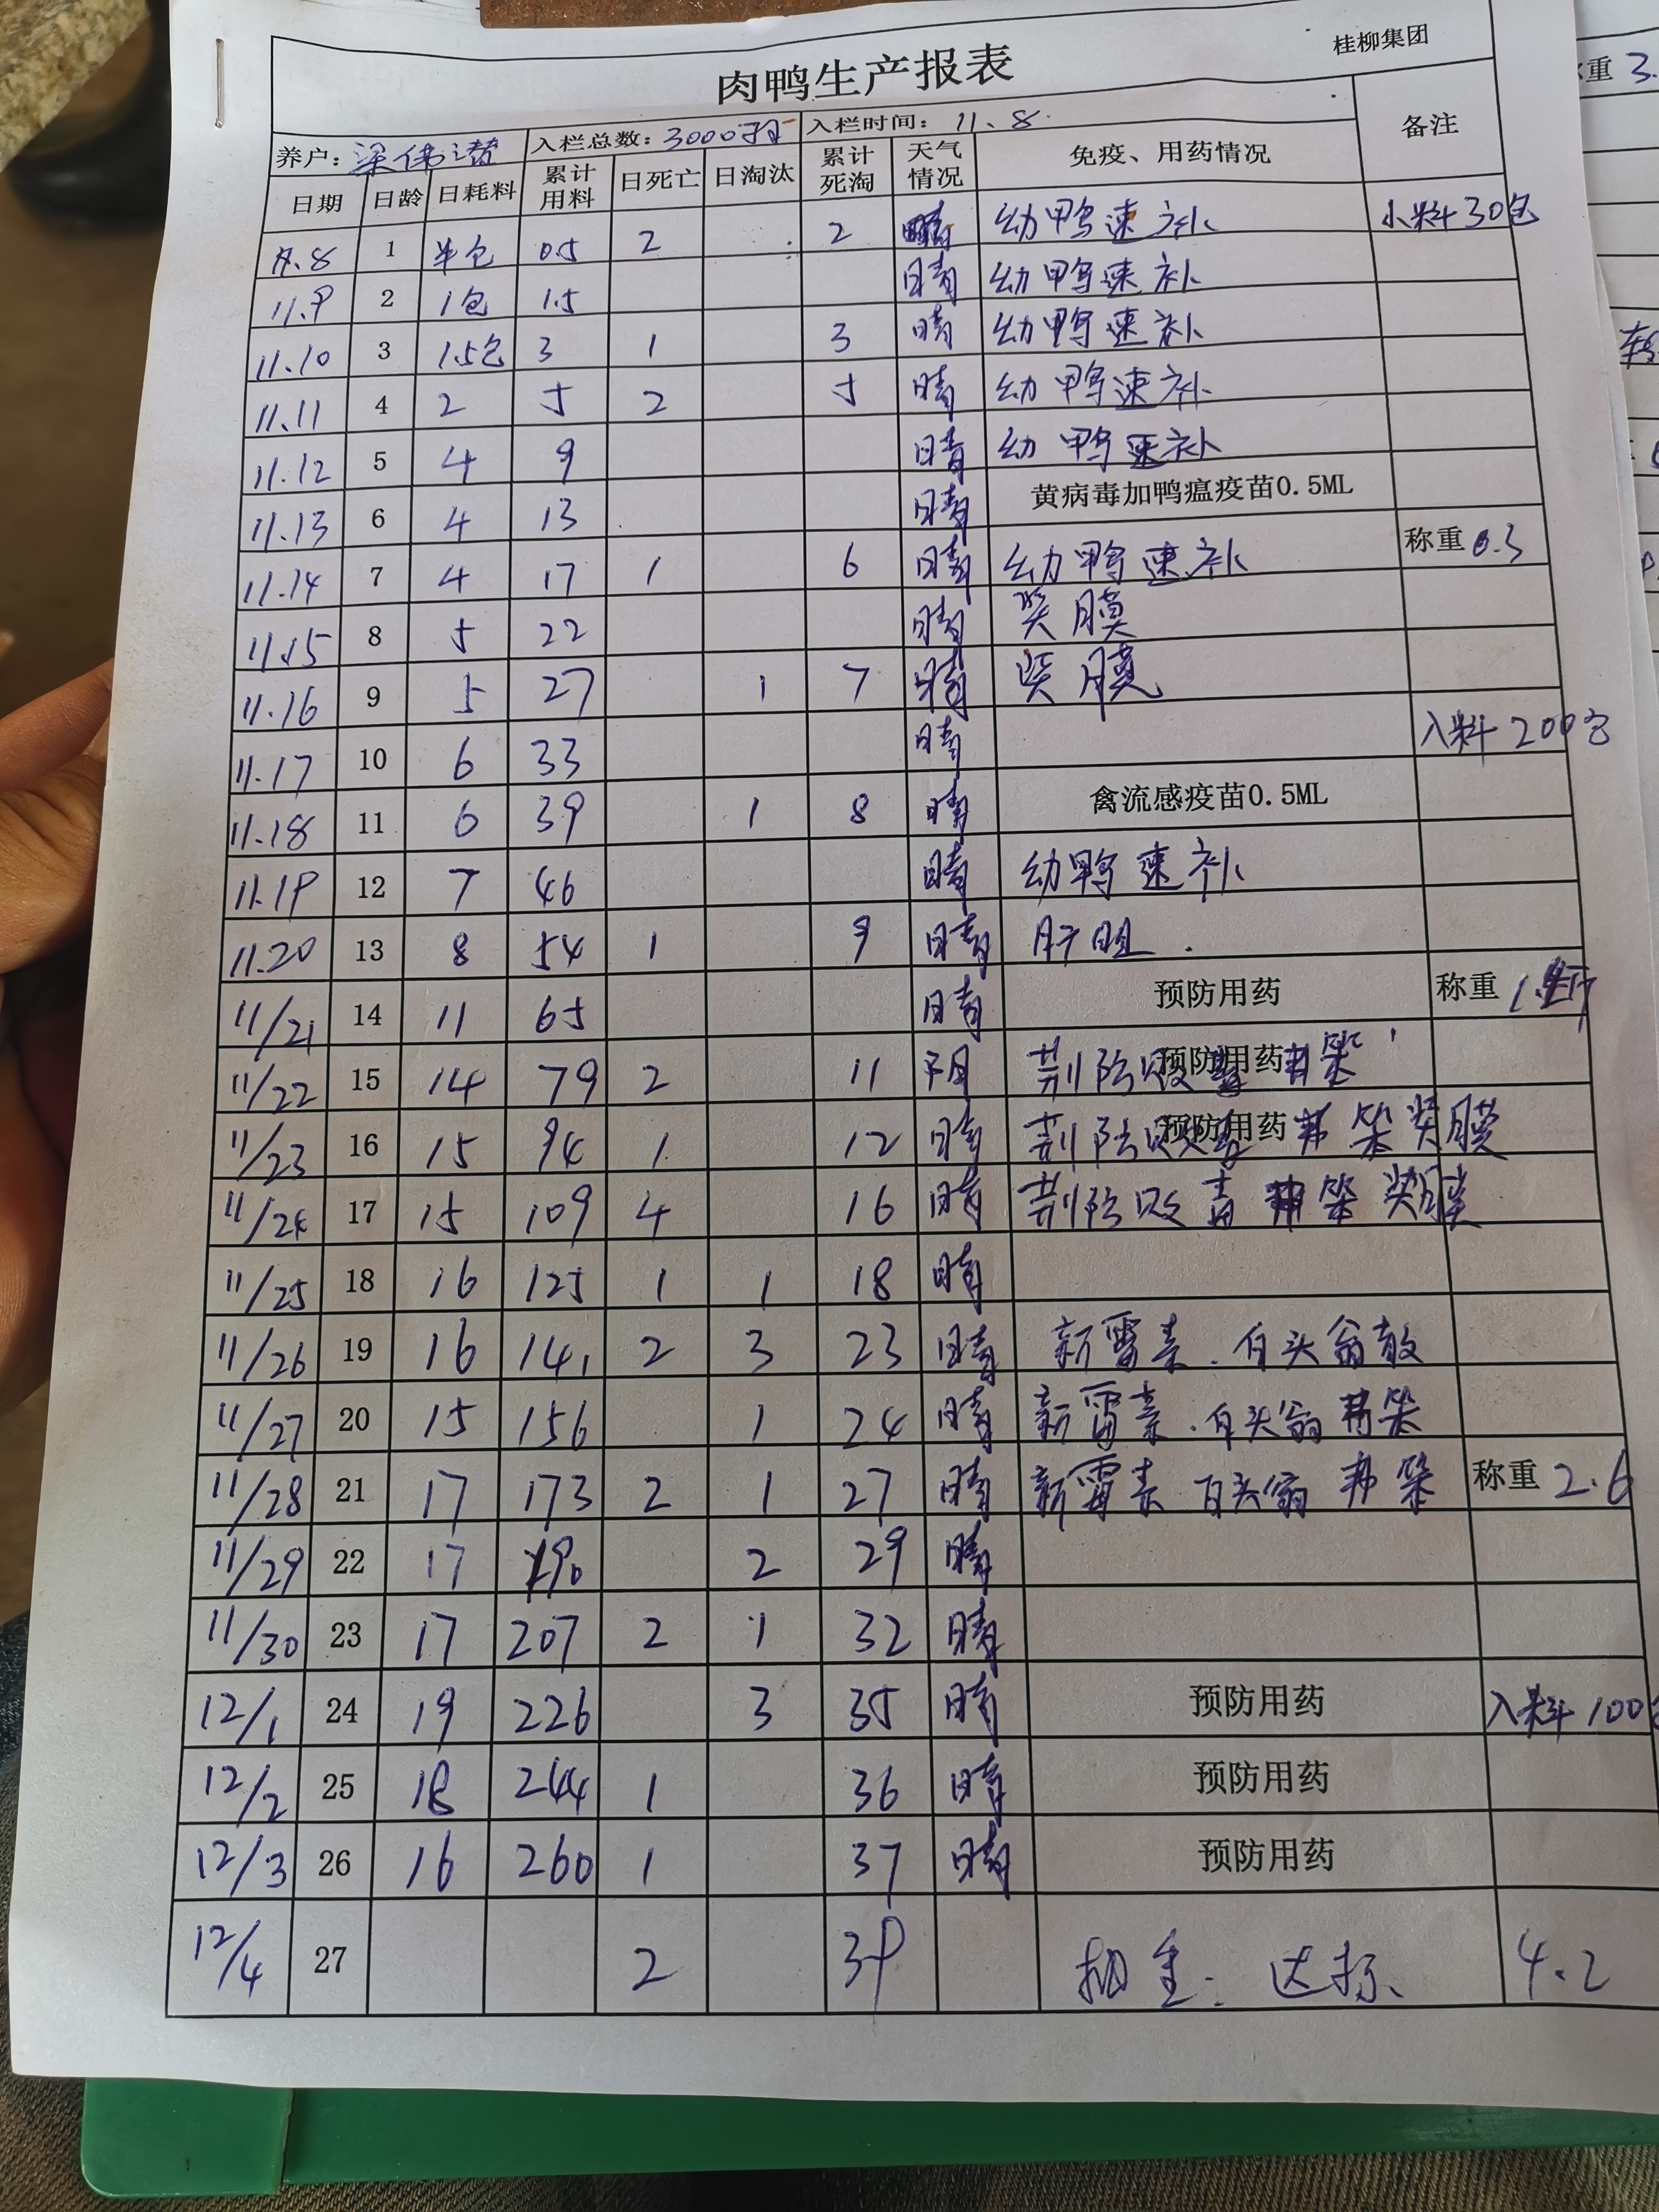 桂柳集团
肉鸭生产报表
养户: 梁伟潜 入栏总数: 3000羽 入栏时间: 11.8
日期 日龄 日耗料 累计用料 日死亡 日淘汰 累计死淘 天气情况 免疫、用药情况 备注
11.8 1 半包 0.5 2 2 晴 幼鸭速补 小料30包
11.9 2 1包 1.5 晴 幼鸭速补
11.10 3 1.5包 3 1 3 晴 幼鸭速补
11.11 4 2 5 2 5 晴 幼鸭速补
11.12 5 4 9 晴 幼鸭速补
11.13 6 4 13 晴 黄病毒加鸭瘟疫苗0.5ML
11.14 7 4 17 1 6 晴 幼鸭速补 称重 0.5
11.15 8 5 22 晴 浆膜
11.16 9 5 27 1 7 晴 浆膜
11.17 10 6 33 晴 入料 200包
11.18 11 6 39 1 8 晴 禽流感疫苗0.5ML
11.19 12 7 46 晴 幼鸭速补
11.20 13 8 54 1 9 晴 肝胆.
11/21 14 11 65 晴 预防用药 称重
11/22 15 14 79 2 11 阴 预防用药 荆防败毒
11/23 16 15 94 1 12 晴 预防用药 荆防败毒 浆膜
11/24 17 15 109 4 16 晴 荆防败毒 浆膜
11/25 18 16 125 1 1 18 晴
11/26 19 16 141 2 3 23 晴 新霉素. 白头翁散
11/27 20 15 156 1 24 晴 新霉素. 白头翁
11/28 21 17 173 2 1 27 晴 新霉素 白头翁 称重 2.6
11/29 22 17 190 2 29 晴
11/30 23 17 207 2 1 32 晴
12/1 24 19 226 3 35 晴 预防用药 入料 100
12/2 25 18 244 1 36 晴 预防用药
12/3 26 16 260 1 37 晴 预防用药
12/4 27 2 39 抽重: 达标、 4.2
重 3.